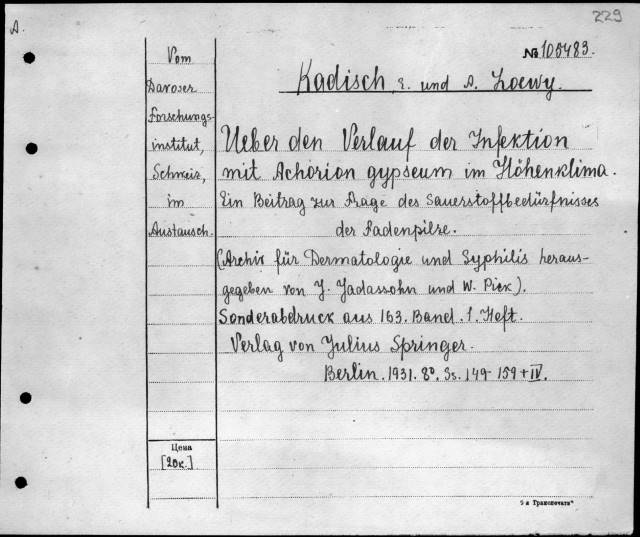 229
A.
№ 105483.
Vom
Davoser
Forschungs-
institut,
Schweiz,
im
Austausch.
Kadisch, E. und A. Loewy.
Ueber den Verlauf der Infektion
mit Achorion gypseum im Höhenklima.
Ein Beitrag zur Frage des Sauerstoffbedürfnisses
der Fadenpilze.
(Archiv für Dermatologie und Syphilis heraus-
gegeben von J. Jadassohn und W. Pick).
Sonderabdruck aus 163. Band. 1. Heft.
Verlag von Julius Springer.
Berlin. 1931. 8°. Ss. 149-159 + IV.
Цена
[20к.]
5-я Транспечать"